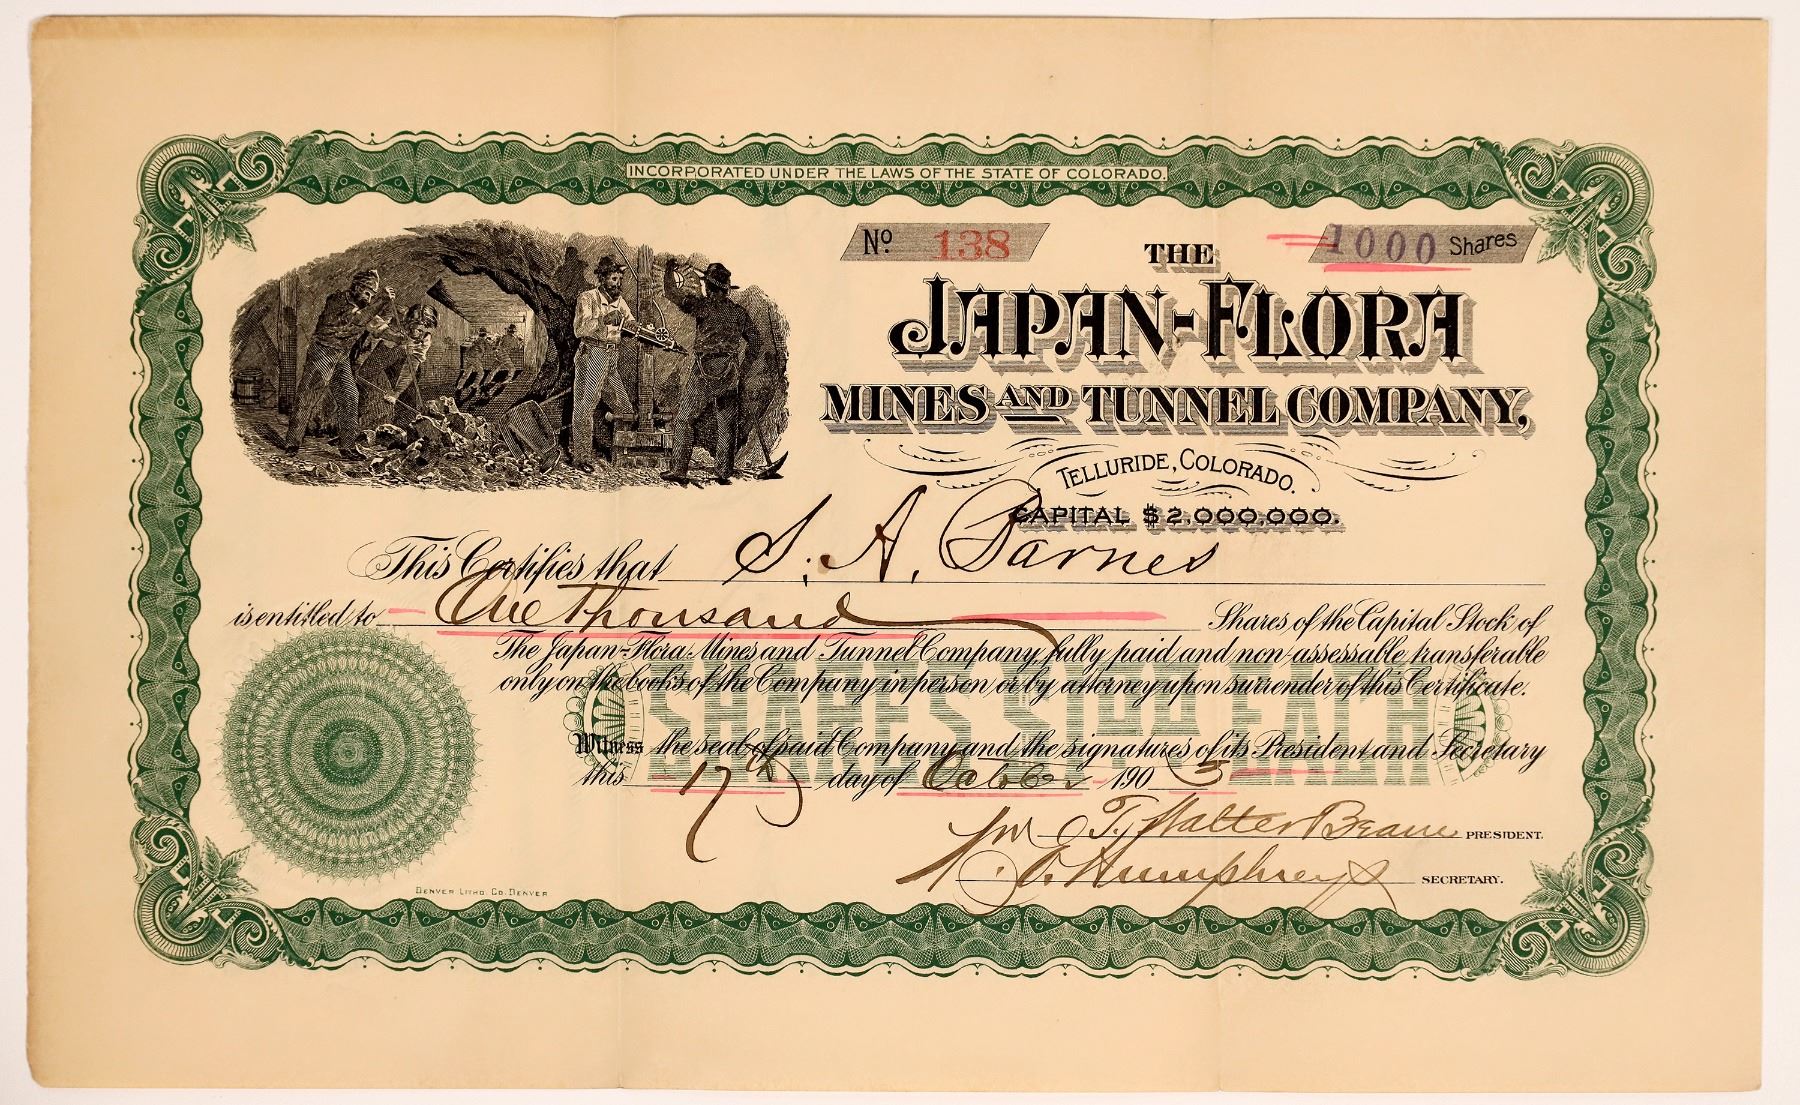 INCORPORATED UNDER THE LAWS OF THE STATE OF COLORADO.
No. 138
1000 Shares
THE
JAPAN-FLORA
MINES AND TUNNEL COMPANY,
TELLURIDE, COLORADO.
CAPITAL $2,000,000.
This Certifies that S. A. Barnes
is entitled to One Thousand Shares of the Capital Stock of
The Japan-Flora Mines and Tunnel Company, fully paid and non-assessable transferable
only on the books of the Company in person or by attorney upon surrender of this Certificate.
SHARES $1.00 EACH
Witness the seal of said Company and the signatures of its President and Secretary
this 17th day of October 1903
T. Walter Beam PRESIDENT.
Humphreys SECRETARY.
DENVER LITHO. CO. DENVER